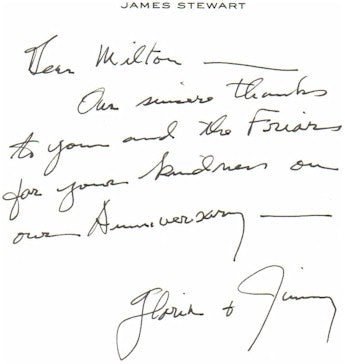 JAMES STEWART
Dear Milton —
Our sincere thanks
to you and the Friars
for your kindness on
our Anniversary —
Gloria + Jimmy